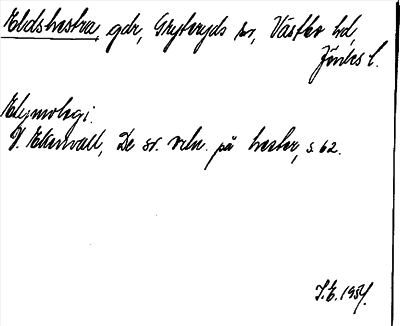 Eldshestra, gdr, Gryteryds sn, Västbo hd,
Jönks l.
Etymologi.
V. Ekenvall, De sv. vrln. på hester, s. 62.
J.E. 1954.